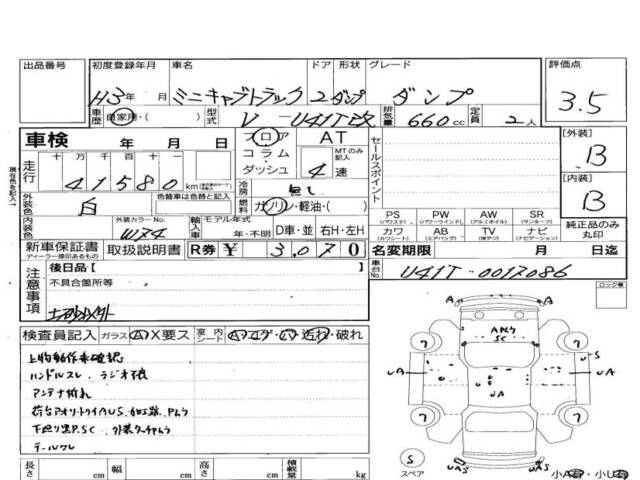 出品番号 初度登録年月 車名 ドア 形状 グレード 評価点
H3年 月 ミニキャブトラック 2 ダンプ ダンプ 3.5
車歴 自家用・( ) 型式 V-U41T改 排気量 660cc 定員 2人
車検 年 月 日 フロア コラム・ダッシュ AT MTのみ記入 4速 セールスポイント [外装] B
走行 十万千百十一 41580 km 冷房 無し [内装] B
外装色 白 色替車は色替と記入 燃料 ガソリン・軽油・( )
内装色 外装カラーNo. W74 輸入車 モデル年式 年・不明 D車・並 右H・左H
PS (パワステ) PW (パワーウインド) AW (アルミホイル) SR (サンルーフ)
カワ (カワシート) AB (エアバッグ) TV (純テレビ) ナビ (ナビゲーション) 純正品のみ丸印
新車保証書 ディーラー捺印あるもの 取扱説明書 R券 ¥ 3,070 名変期限 月 日迄
車台No. U41T-0017086
注意事項 後日品[ ]
不具合箇所等
ロック車
現在色を記入→
検査員記入 ガラス A・X要ス 室内シート
汚れ・破れ
上物動作未確認
ハンドルスレ、ラジオ不良
アンテナ折れ
テールワレ
長さ cm 幅 cm 高さ cm 積載量 kg
A A
Aトム
SC
7 7
S
UA A UA
UA
7 7
S
スペア
UAS UAS
小A有・小U有